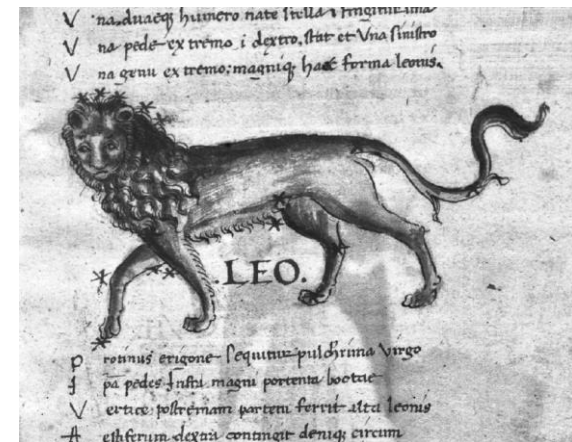 V na, duaeq; humero nate stella
V na pede extremo i dextro, stat et Una sinistro
V na genu extremo; magniq; haec forma leonis.
LEO.
P rotinus erigone sequitur pulchrima Virgo
I pa pedes Infra magni portenta bootae
V ertice: postremam partem ferit alta leonis
A estiferum dextra contingit deniq; circum